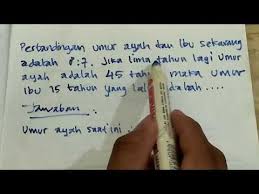 Perbandingan umur ayah dan Ibu sekarang
adalah 8:7. Jika lima tahun lagi umur
ayah adalah 45 tahun maka umur
Ibu 15 tahun yang lalu adalah ....
Jawaban :
Umur ayah saat ini :